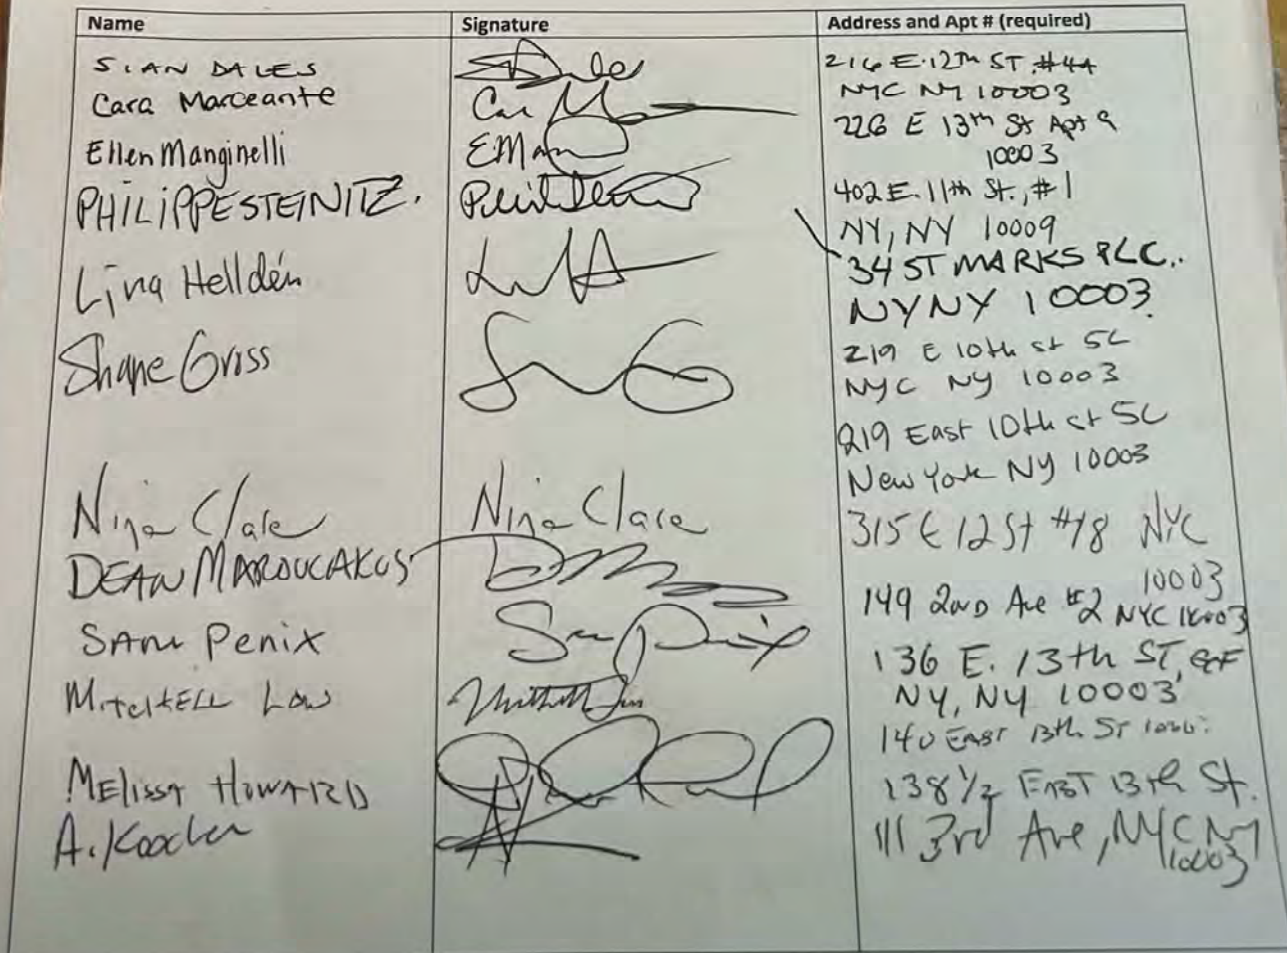 Name Signature Address and Apt # (required)
SIAN DALES 216 E. 12Th ST #4A
NYC NY 10003
Cara Marceante Ca M 226 E 13th St Apt 9
10003
Ellen Manginelli EMan 402 E. 11th St., #1
NY, NY 10009
PHILIPPE STEINITZ. 34 ST MARKS PLC..
NY NY 10003.
Lina Helldén 219 E 10th st 5C
NYC NY 10003
Shane Gross 219 East 10th st 5C
New York NY 10003
Nina Clare Nina Clare 315 E 12 St #18 NYC
10003
DEAN MAROUCAKOS 149 2ND Ave #2 NYC 10003
SAM Penix Sam Penix 136 E. 13th ST,
NY, NY 10003
MITCHELL LOW 140 EAST 13th ST
MELISSA HOWARD 138 1/2 EAST 13th St.
A. 111 3rd Ave, NYC NY
10003